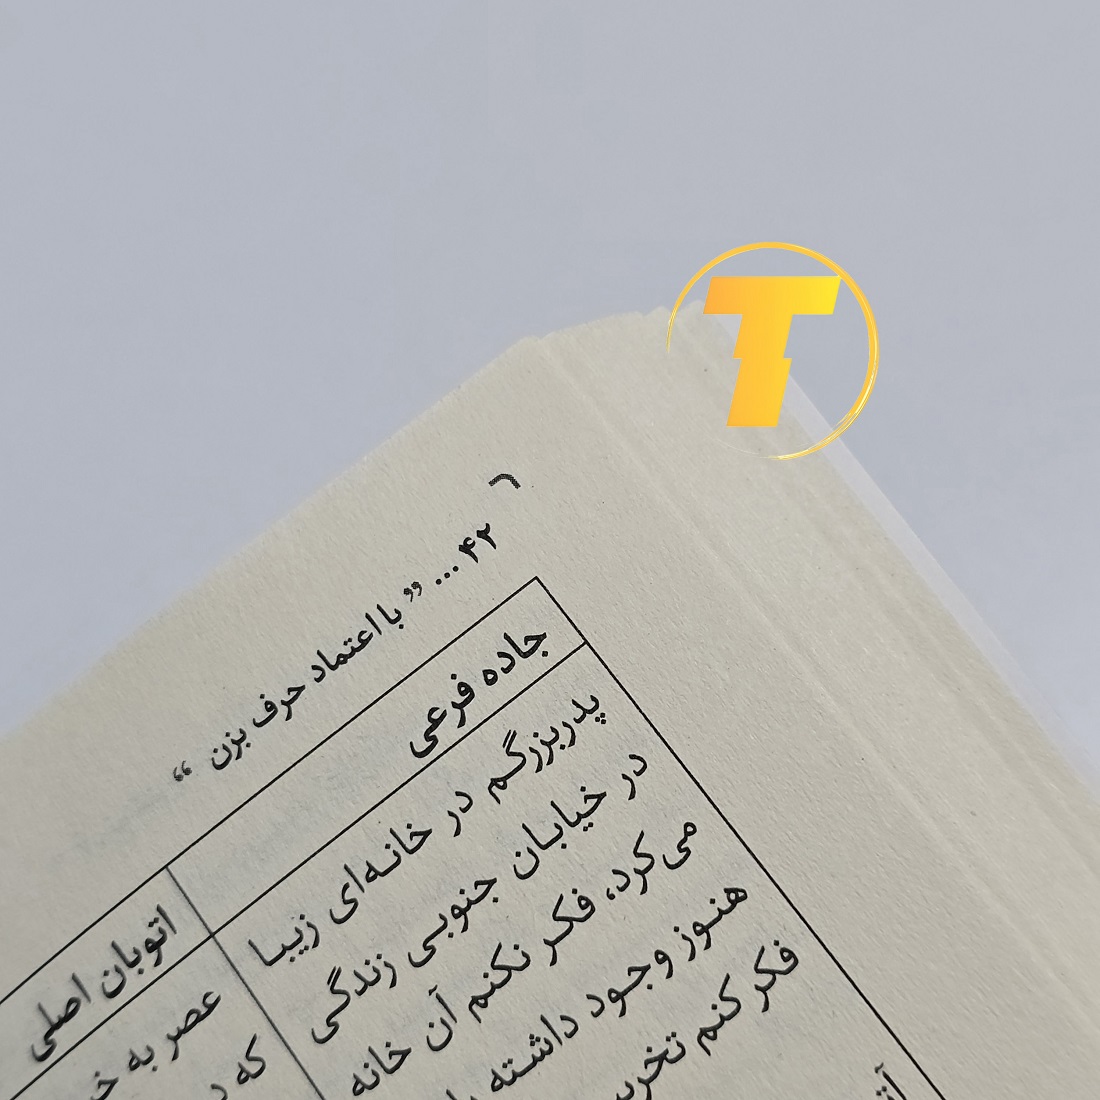 ۴۲ ... ” با اعتماد حرف بزن “
جاده فرعی
پدربزرگم در خانه‌ای زیبا
در خیابان جنوبی زندگی
می‌کرد، فکر نکنم آن خانه
هنوز وجود داشته
فکر کنم
اتوبان اصلی
عصر به
که
T